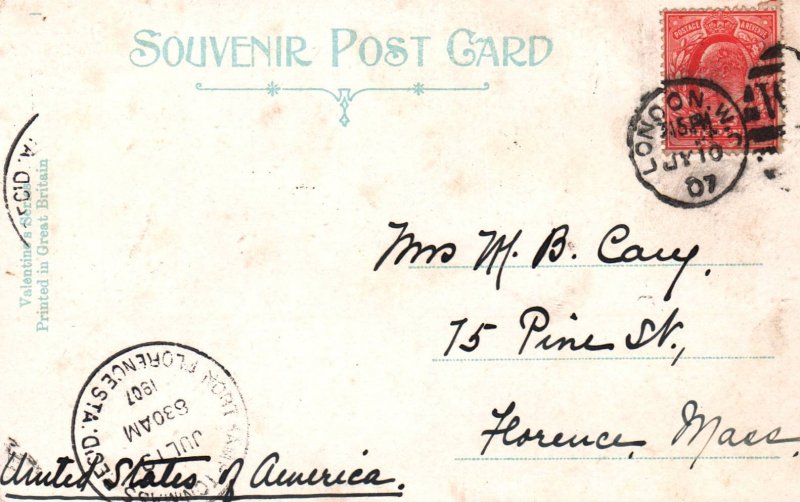 SOUVENIR POST CARD
POSTAGE & REVENUE
LONDON. W.
3 15 PM
JY 10
07
REC'D.
Valentine's Series
Printed in Great Britain
Mrs M. B. Cary,
75 Pine St,
Florence, Mass.
REC'D. FLORENCE STA.
1907
830 AM
JUL
MASS
United States of America.